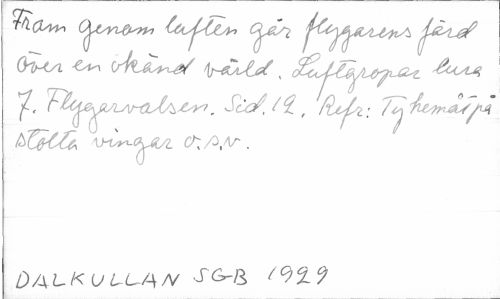 Fram genom luften går flygarens färd
över en okänd värld. Luftgropar lura
7. Flygarvalsen. Sid. 12. Refr: Ty hemåt på
stolta vingar o.s.v.
DALKULLAN SGB 1929